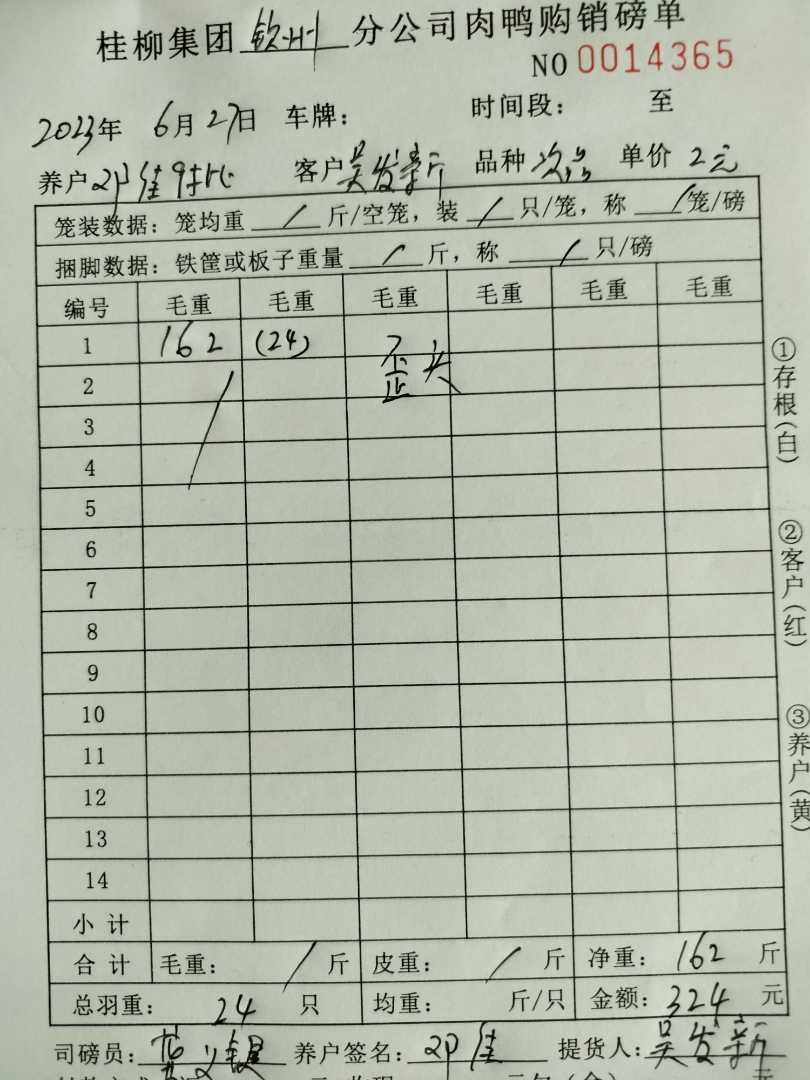 桂柳集团 钦州 分公司肉鸭购销磅单
NO 0014365
2023年 6月27日 车牌: 时间段: 至
养户 邓佳 客户 吴发新 品种 次品 单价 2元
笼装数据: 笼均重 / 斤/空笼, 装 / 只/笼, 称 / 笼/磅
捆脚数据: 铁筐或板子重量 / 斤, 称 / 只/磅
编号 毛重 毛重 毛重 毛重 毛重 毛重
1 162 (24) 歪头
2 /
3
4
5
6
7
8
9
10
11
12
13
14
小计
合计 毛重: / 斤 皮重: / 斤 净重: 162 斤
总羽重: 24 只 均重: 斤/只 金额: 324 元
司磅员: 养户签名: 邓佳 提货人: 吴发新
①存根(白)
②客户(红)
③养户(黄)